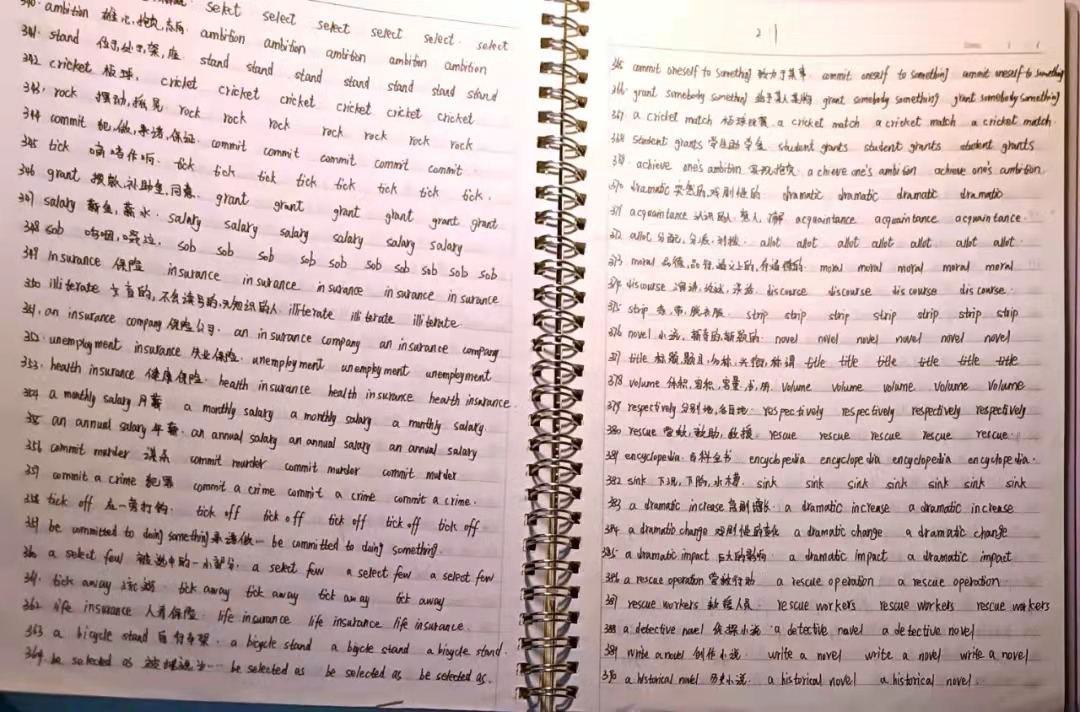 select select select select select select
340. ambition 雄心,抱负,志向. ambition ambition ambition ambition ambition
341. stand 位于,处于,架,座. stand stand stand stand stand stand
342 cricket 板球. cricket cricket cricket cricket cricket cricket
343. rock 摆动,摇晃 rock rock rock rock rock rock
344 commit 犯,做,承诺,保证. commit commit commit commit commit
345 tick 嘀嗒作响. tick tick tick tick tick tick tick tick.
346 grant 拨款,补助金,同意. grant grant grant grant grant grant
347 salary 薪金,薪水. salary salary salary salary salary salary
348 sob 呜咽,啜泣. sob sob sob sob sob sob sob sob sob
349 insurance 保险 insurance insurance insurance insurance insurance
350 illiterate 文盲的,不会读写的,无知识的人 illiterate illiterate illiterate.
351. an insurance company 保险公司. an insurance company an insurance company
352. unemployment insurance 失业保险. unemployment unemployment unemployment
353. health insurance 健康保险. health insurance health insurance health insurance.
354 a monthly salary 月薪 a monthly salary a monthly salary a monthly salary
355 an annual salary 年薪. an annual salary an annual salary an annual salary
356 commit murder 谋杀 commit murder commit murder commit murder
357 commit a crime 犯罪 commit a crime commit a crime commit a crime.
358 tick off 在一旁打钩. tick off tick off tick off tick off tick off
359 be committed to doing something 承诺做… be committed to doing something.
360 a select few 被选中的一小部分. a select few a select few a select few
361. tick away 流逝. tick away tick away tick away tick away
362 life insurance 人寿保险. life insurance life insurance life insurance.
363 a bicycle stand 自行车架. a bicycle stand a bicycle stand a bicycle stand.
364. be selected as 被挑选为… be selected as be selected as be selected as.
2
365 commit oneself to something 致力于某事 commit oneself to something commit oneself to something
366. grant somebody something 给予某人某物 grant somebody something grant somebody something
367 a cricket match 板球比赛. a cricket match a cricket match a cricket match.
368 student grants 学生助学金 student grants student grants student grants
369. achieve one's ambition 实现抱负. achieve one's ambition achieve one's ambition.
370 dramatic 突然的,戏剧性的 dramatic dramatic dramatic dramatic
371 acquaintance 认识的人,熟人,了解 acquaintance acquaintance acquaintance.
372 allot 分配,分派,划拨. allot allot allot allot allot allot.
373 moral 品德,品行,道义上的,合道德的. moral moral moral moral moral
374 discourse 演讲,论述,discourse discourse discourse discourse.
375 strip 条,带,脱衣服. strip strip strip strip strip strip
376 novel 小说,新奇的,新颖的. novel novel novel novel novel novel
377 title 标题,题目,名称,头衔,称谓 title title title title title title
378 volume 体积,容积,容量,书,册. volume volume volume volume volume
379 respectively 分别地,各自地. respectively respectively respectively respectively
380 rescue 营救,救助,救援. rescue rescue rescue rescue rescue.
381 encyclopedia. 百科全书 encyclopedia encyclopedia encyclopedia encyclopedia.
382 sink 下沉,下陷,水槽. sink sink sink sink sink sink
383 a dramatic increase 急剧增长. a dramatic increase a dramatic increase
384 a dramatic change 戏剧性的变化 a dramatic change a dramatic change
385. a dramatic impact 巨大的影响 a dramatic impact a dramatic impact
386 a rescue operation 营救行动 a rescue operation a rescue operation.
387 rescue workers 救援人员. rescue workers rescue workers rescue workers
388 a detective novel 侦探小说. a detective novel a detective novel
389 write a novel 创作小说. write a novel write a novel write a novel
390 a historical novel 历史小说. a historical novel a historical novel.